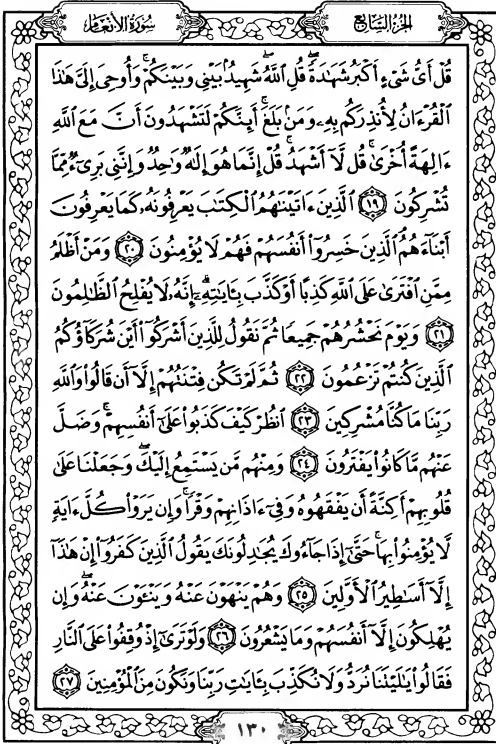 الجزء السابع
سورة الأنعام
قُلْ أَيُّ شَىْءٍ أَكْبَرُ شَهَـٰدَةً ۖ قُلِ ٱللَّهُ ۖ شَهِيدٌۢ بَيْنِى وَبَيْنَكُمْ ۚ وَأُوحِىَ إِلَىَّ هَـٰذَا
ٱلْقُرْءَانُ لِأُنذِرَكُم بِهِۦ وَمَنۢ بَلَغَ ۚ أَئِنَّكُمْ لَتَشْهَدُونَ أَنَّ مَعَ ٱللَّهِ
ءَالِهَةً أُخْرَىٰ ۚ قُل لَّآ أَشْهَدُ ۚ قُلْ إِنَّمَا هُوَ إِلَـٰهٌ وَٰحِدٌ وَإِنَّنِى بَرِىٓءٌ مِّمَّا
تُشْرِكُونَ ١٩ ٱلَّذِينَ ءَاتَيْنَـٰهُمُ ٱلْكِتَـٰبَ يَعْرِفُونَهُۥ كَمَا يَعْرِفُونَ
أَبْنَآءَهُمُ ٱلَّذِينَ خَسِرُوٓا۟ أَنفُسَهُمْ فَهُمْ لَا يُؤْمِنُونَ ٢٠ وَمَنْ أَظْلَمُ
مِمَّنِ ٱفْتَرَىٰ عَلَى ٱللَّهِ كَذِبًا أَوْ كَذَّبَ بِـَٔايَـٰتِهِۦٓ ۗ إِنَّهُۥ لَا يُفْلِحُ ٱلظَّـٰلِمُونَ
٢١ وَيَوْمَ نَحْشُرُهُمْ جَمِيعًا ثُمَّ نَقُولُ لِلَّذِينَ أَشْرَكُوٓا۟ أَيْنَ شُرَكَآؤُكُمُ
ٱلَّذِينَ كُنتُمْ تَزْعُمُونَ ٢٢ ثُمَّ لَمْ تَكُن فِتْنَتُهُمْ إِلَّآ أَن قَالُوا۟ وَٱللَّهِ
رَبِّنَا مَا كُنَّا مُشْرِكِينَ ٢٣ ٱنظُرْ كَيْفَ كَذَبُوا۟ عَلَىٰٓ أَنفُسِهِمْ ۚ وَضَلَّ
عَنْهُم مَّا كَانُوا۟ يَفْتَرُونَ ٢٤ وَمِنْهُم مَّن يَسْتَمِعُ إِلَيْكَ ۖ وَجَعَلْنَا عَلَىٰ
قُلُوبِهِمْ أَكِنَّةً أَن يَفْقَهُوهُ وَفِىٓ ءَاذَانِهِمْ وَقْرًا ۚ وَإِن يَرَوْا۟ كُلَّ ءَايَةٍ
لَّا يُؤْمِنُوا۟ بِهَا ۚ حَتَّىٰٓ إِذَا جَآءُوكَ يُجَـٰدِلُونَكَ يَقُولُ ٱلَّذِينَ كَفَرُوٓا۟ إِنْ هَـٰذَآ
إِلَّآ أَسَـٰطِيرُ ٱلْأَوَّلِينَ ٢٥ وَهُمْ يَنْهَوْنَ عَنْهُ وَيَنْـَٔوْنَ عَنْهُ ۖ وَإِن
يُهْلِكُونَ إِلَّآ أَنفُسَهُمْ وَمَا يَشْعُرُونَ ٢٦ وَلَوْ تَرَىٰٓ إِذْ وُقِفُوا۟ عَلَى ٱلنَّارِ
فَقَالُوا۟ يَـٰلَيْتَنَا نُرَدُّ وَلَا نُكَذِّبَ بِـَٔايَـٰتِ رَبِّنَا وَنَكُونَ مِنَ ٱلْمُؤْمِنِينَ ٢٧
١٣٠